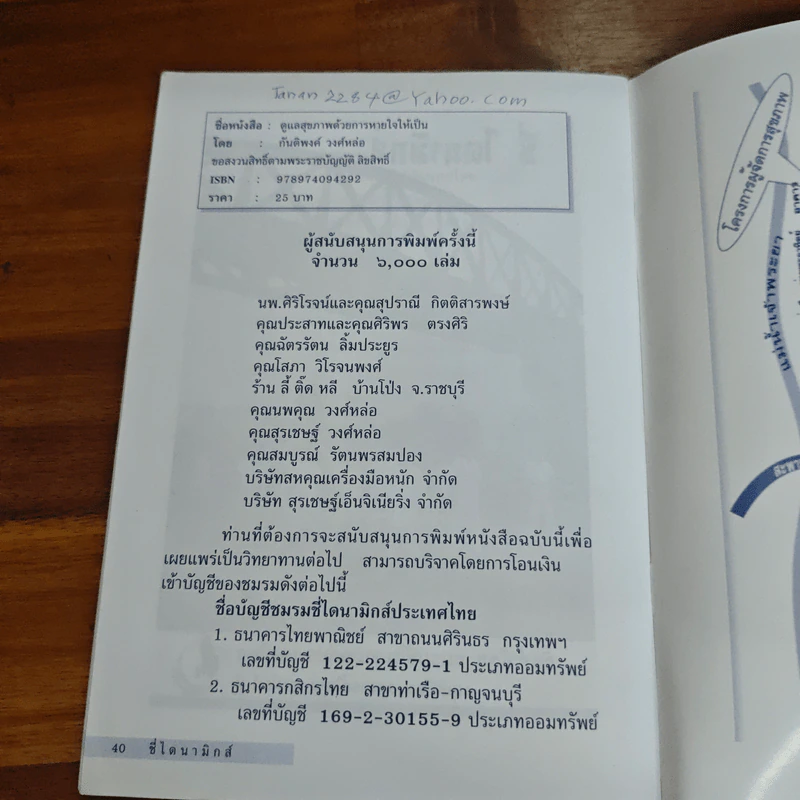 Tanan 2284@Yahoo.com
ชื่อหนังสือ : ดูแลสุขภาพด้วยการหายใจให้เป็น
โดย : กันติพงศ์ วงศ์หล่อ
ขอสงวนสิทธิ์ตามพระราชบัญญัติ ลิขสิทธิ์
ISBN : 978974094292
ราคา : 25 บาท
ผู้สนับสนุนการพิมพ์ครั้งนี้
จำนวน ๖,๐๐๐ เล่ม
นพ.ศิริโรจน์และคุณสุปราณี กิตติสารพงษ์
คุณประสาทและคุณศิริพร ตรงศิริ
คุณฉัตรรัตน ลิ้มประยูร
คุณโสภา วิโรจนพงศ์
ร้าน ลี้ ติ๊ด หลี บ้านโป่ง จ.ราชบุรี
คุณนพคุณ วงศ์หล่อ
คุณสุรเชษฐ์ วงศ์หล่อ
คุณสมบูรณ์ รัตนพรสมปอง
บริษัทสหคุณเครื่องมือหนัก จำกัด
บริษัท สุรเชษฐ์เอ็นจิเนียริ่ง จำกัด
ท่านที่ต้องการจะสนับสนุนการพิมพ์หนังสือฉบับนี้เพื่อ
เผยแพร่เป็นวิทยาทานต่อไป สามารถบริจาคโดยการโอนเงิน
เข้าบัญชีของชมรมดังต่อไปนี้
ชื่อบัญชีชมรมชี่ไดนามิกส์ประเทศไทย
1. ธนาคารไทยพาณิชย์ สาขาถนนศิรินธร กรุงเทพฯ
เลขที่บัญชี 122-224579-1 ประเภทออมทรัพย์
2. ธนาคารกสิกรไทย สาขาท่าเรือ-กาญจนบุรี
เลขที่บัญชี 169-2-30155-9 ประเภทออมทรัพย์
40 ชี่ไดนามิกส์
โครงการผู้จัดการสุขภาพ
แม่น้ำเจ้าพระยา